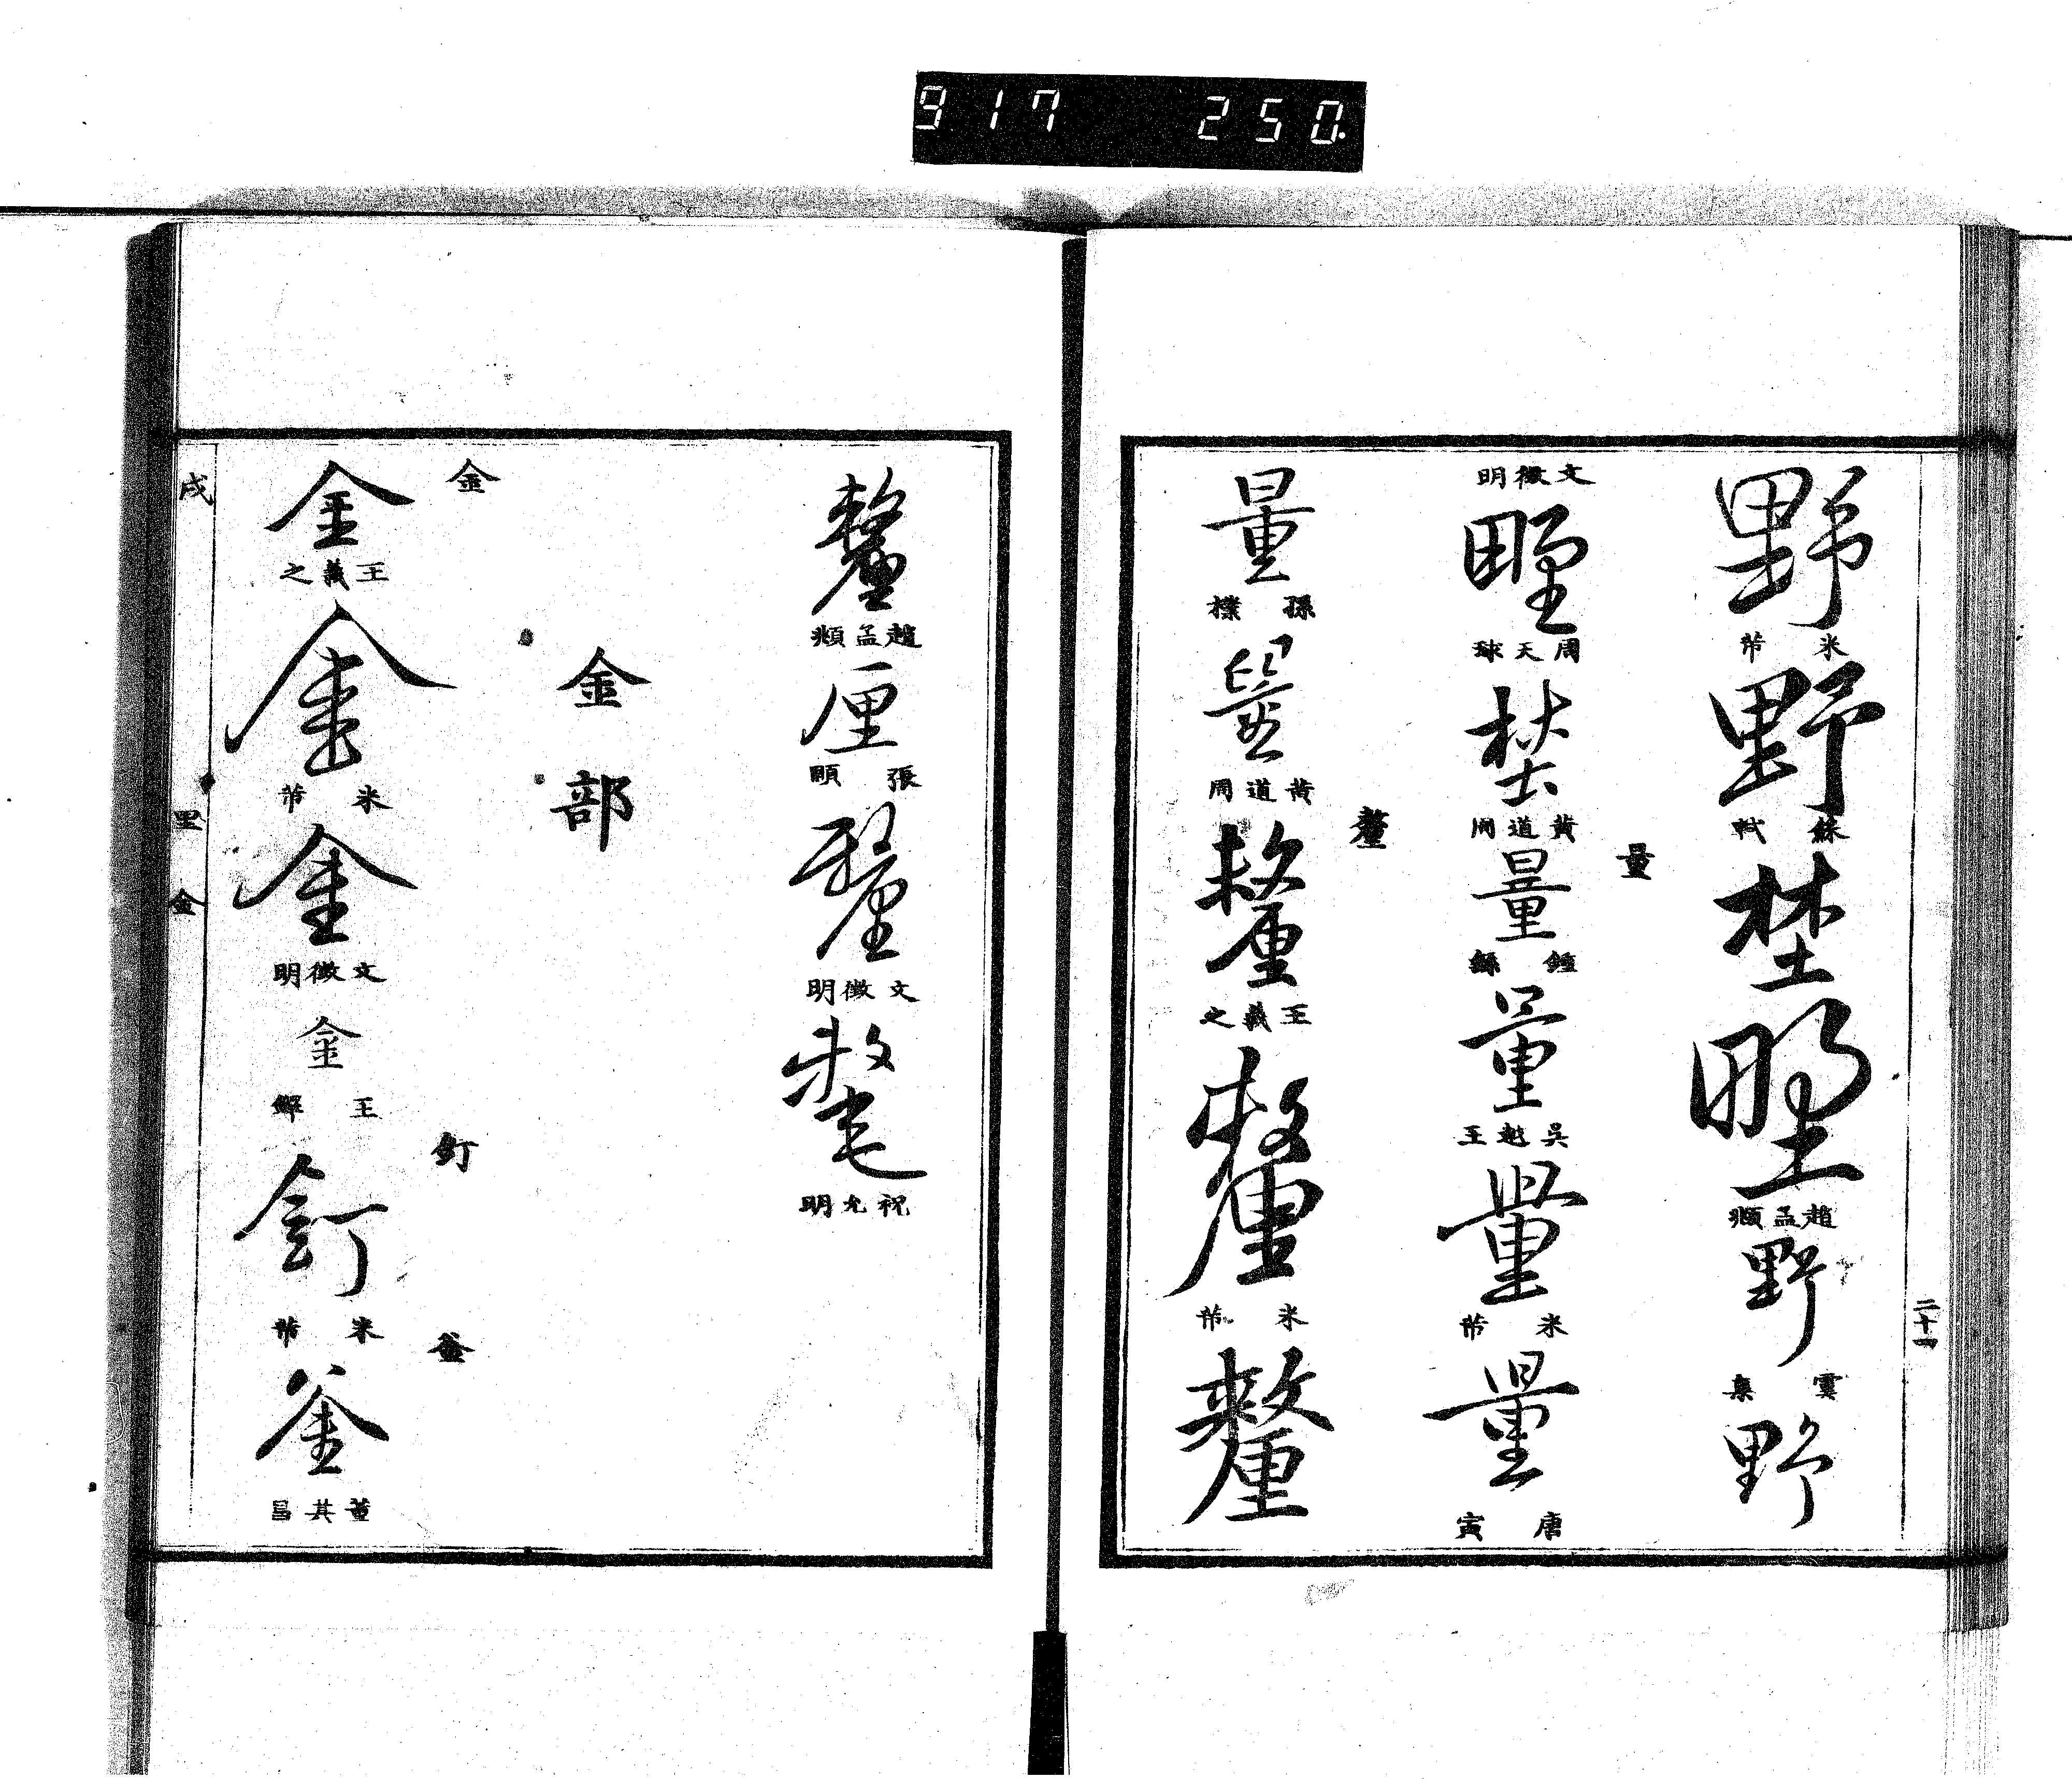 917 250.
二十一
野
米芾
野
蘇軾
埜
野
趙孟頫
野
野
文徵明
野
周天球
埜
黄道周
量
量
鍾繇
量
吳越王
量
米芾
量
唐寅
量
孫樸
量
黄道周
釐
釐
王羲之
釐
米芾
釐
釐
趙孟頫
厘
張頤
釐
文徵明
釐
祝允明
金部
金
金
王羲之
金
米芾
金
文徵明
金
王
釘
釘
米芾
釜
釜
董其昌
戍
里
金